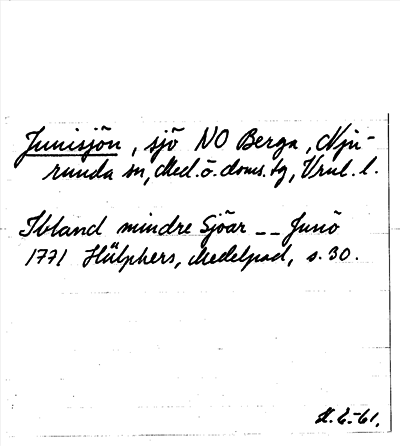 Junisjön, sjö NO Berga, Nju-
runda sn, Med. ö. doms. tg, Vnrl. l.
Ibland mindre Sjöar -- Junö
1771 Hülphers, Medelpad, s. 30.
-61.